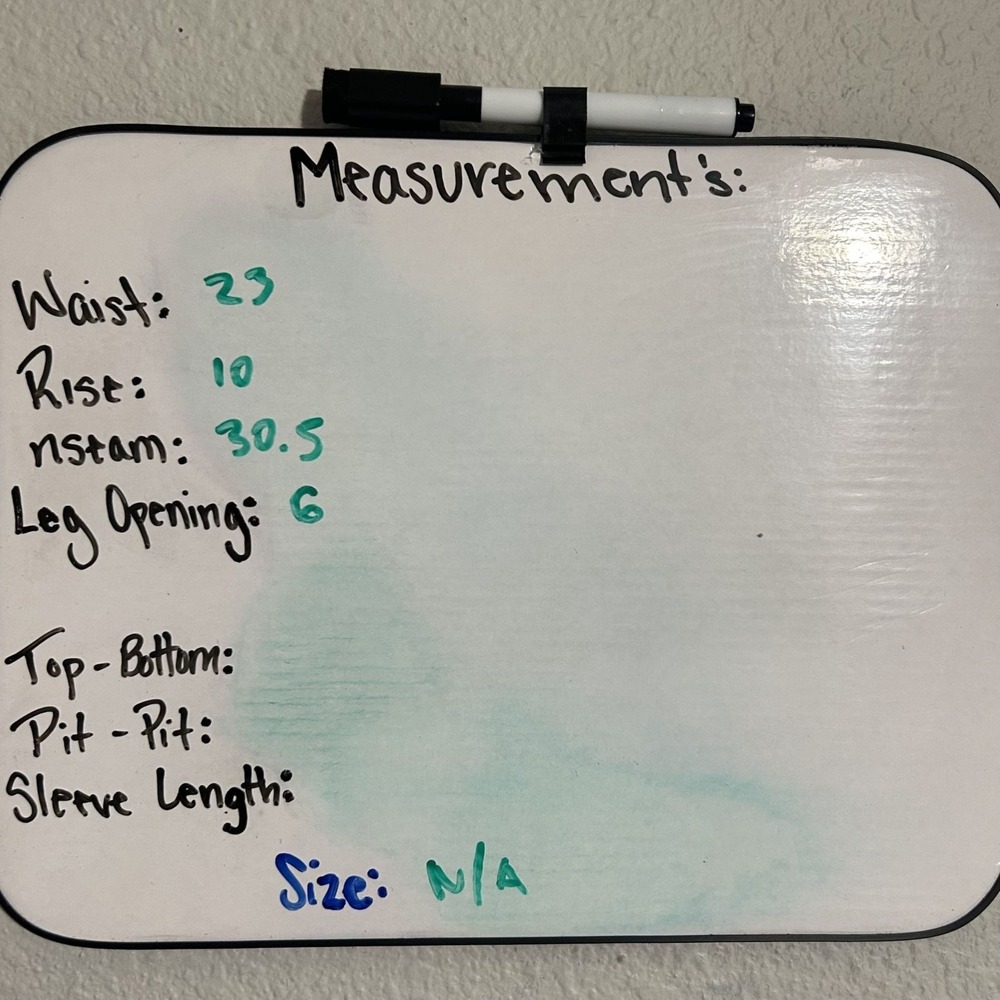 Measurement's:
Waist: 23
Rise: 10
nseam: 30.5
Leg Opening: 6
Top-Bottom:
Pit-Pit:
Sleeve Length:
Size: N/A